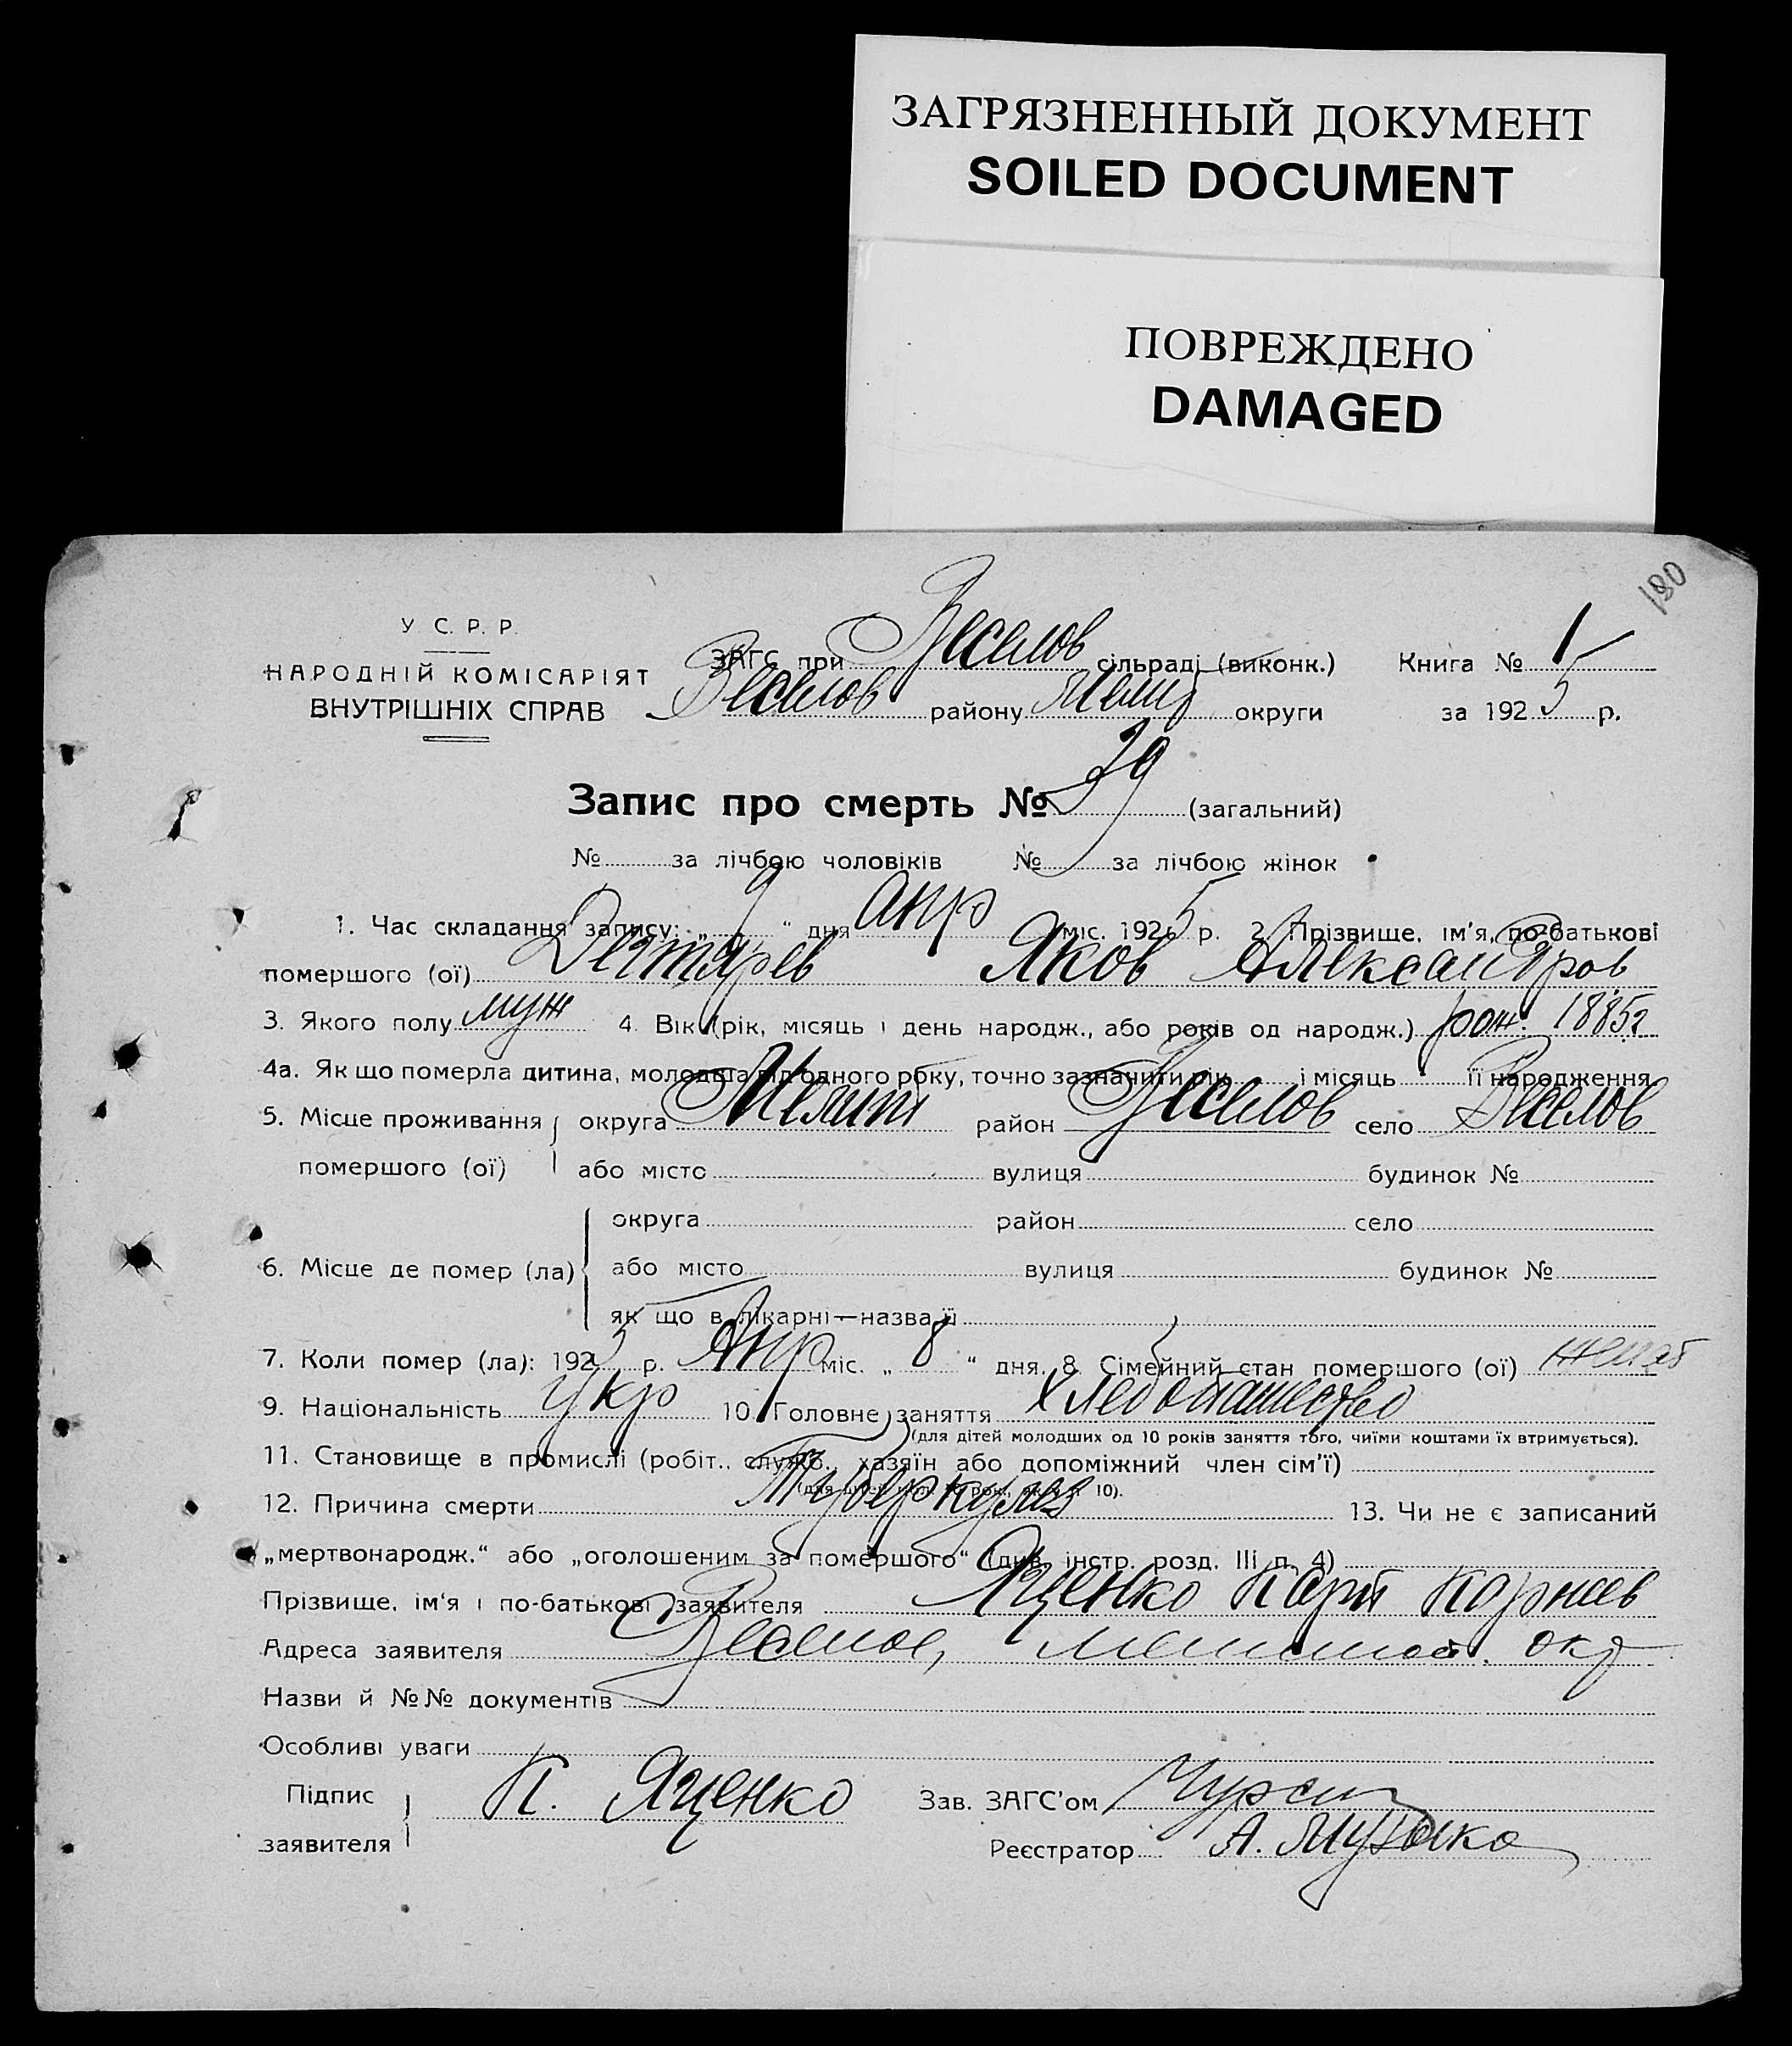 ЗАГРЯЗНЕННЫЙ ДОКУМЕНТ
SOILED DOCUMENT
ПОВРЕЖДЕНО
DAMAGED
180
У С. Р. Р.
НАРОДНІЙ КОМІСАРІЯТ
ВНУТРІШНІХ СПРАВ
ЗАГС при Веселов сільраді (виконк.) Книга № 1
Веселов району Мелит округи за 1925 р.
Запис про смерть № 39 (загальний)
№ за лічбою чоловіків № за лічбою жінок
1. Час складання запису: „ 9 “ дня апр міс. 1925 р. 2. Прізвище, ім'я, по-батькові
помершого (ої) Дегтярев Яков Александров
3. Якого полу муж 4. Вік (рік, місяць і день народж., або років од народж.) рож. 1885г
4а. Як що померла дитина, молодша від одного року, точно зазначити рік і місяць її народження
5. Місце проживання округа Мелит район Веселов село Веселов
помершого (ої) або місто вулиця будинок №
округа район село
6. Місце де помер (ла) або місто вулиця будинок №
як що в лікарні—назва її
7. Коли помер (ла): 1925 р. Апр міс. „ 8 “ дня. 8. Сімейний стан помершого (ої) женат
9. Національність укр 10. Головне заняття хлебопашество
(для дітей молодших од 10 років заняття того, чиїми коштами їх втримується).
11. Становище в промислі (робіт., служб., хазяїн або допоміжний член сім'ї)
12. Причина смерти Туберкулез 13. Чи не є записаний
„мертвонародж.“ або „оголошеним за помершого“ (див. інстр. розд. III п. 4)
Прізвище, ім'я і по-батькові заявителя Яценко Карп Корнеев
Адреса заявителя Веселое, окр
Назви й №№ документів
Особливі уваги
Підпис заявителя К. Яценко Зав. ЗАГС'ом
Реєстратор А. Музыка